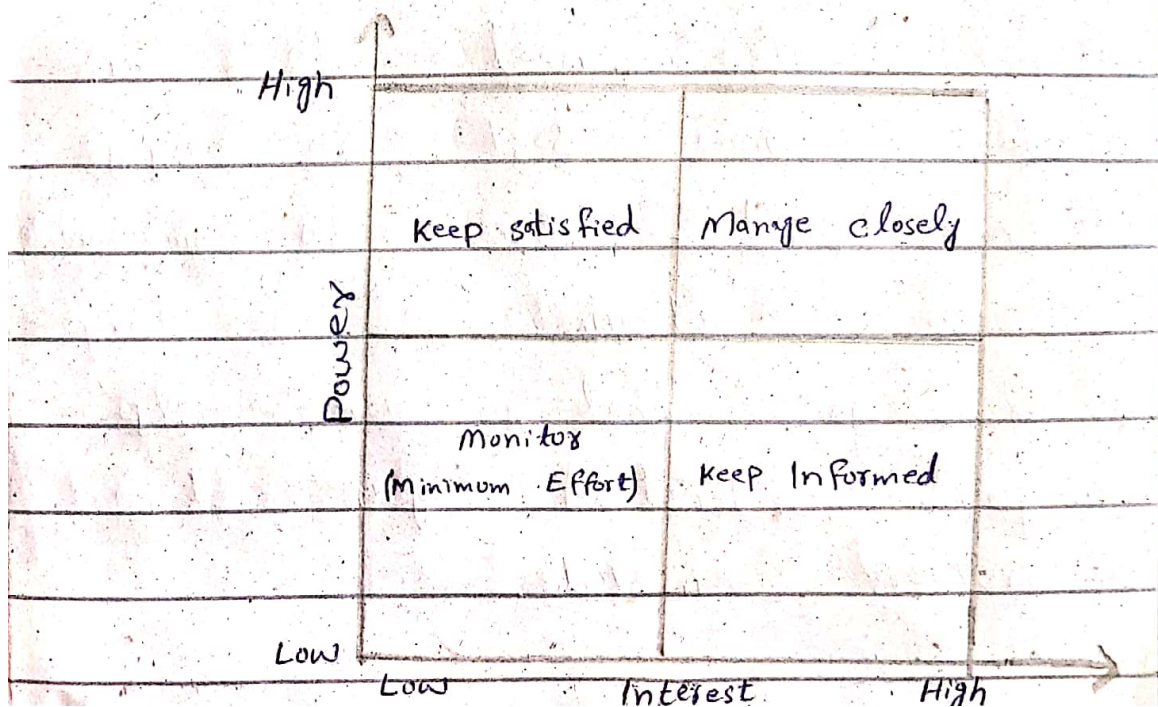 High
Keep satisfied
Manage closely
Power
Monitor
(Minimum Effort)
Keep Informed
Low
Low
Interest
High